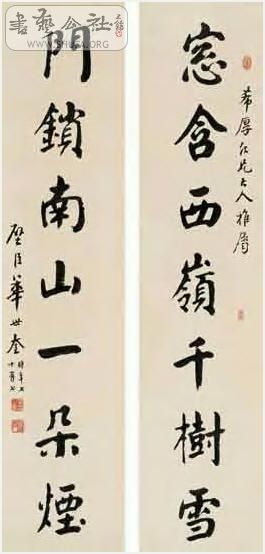 希厚仁兄大人雅屬
窓含西嶺千樹雪
門鎖南山一朵煙
壁臣華世奎
書藝公社
WWW.SHUFA.ORG